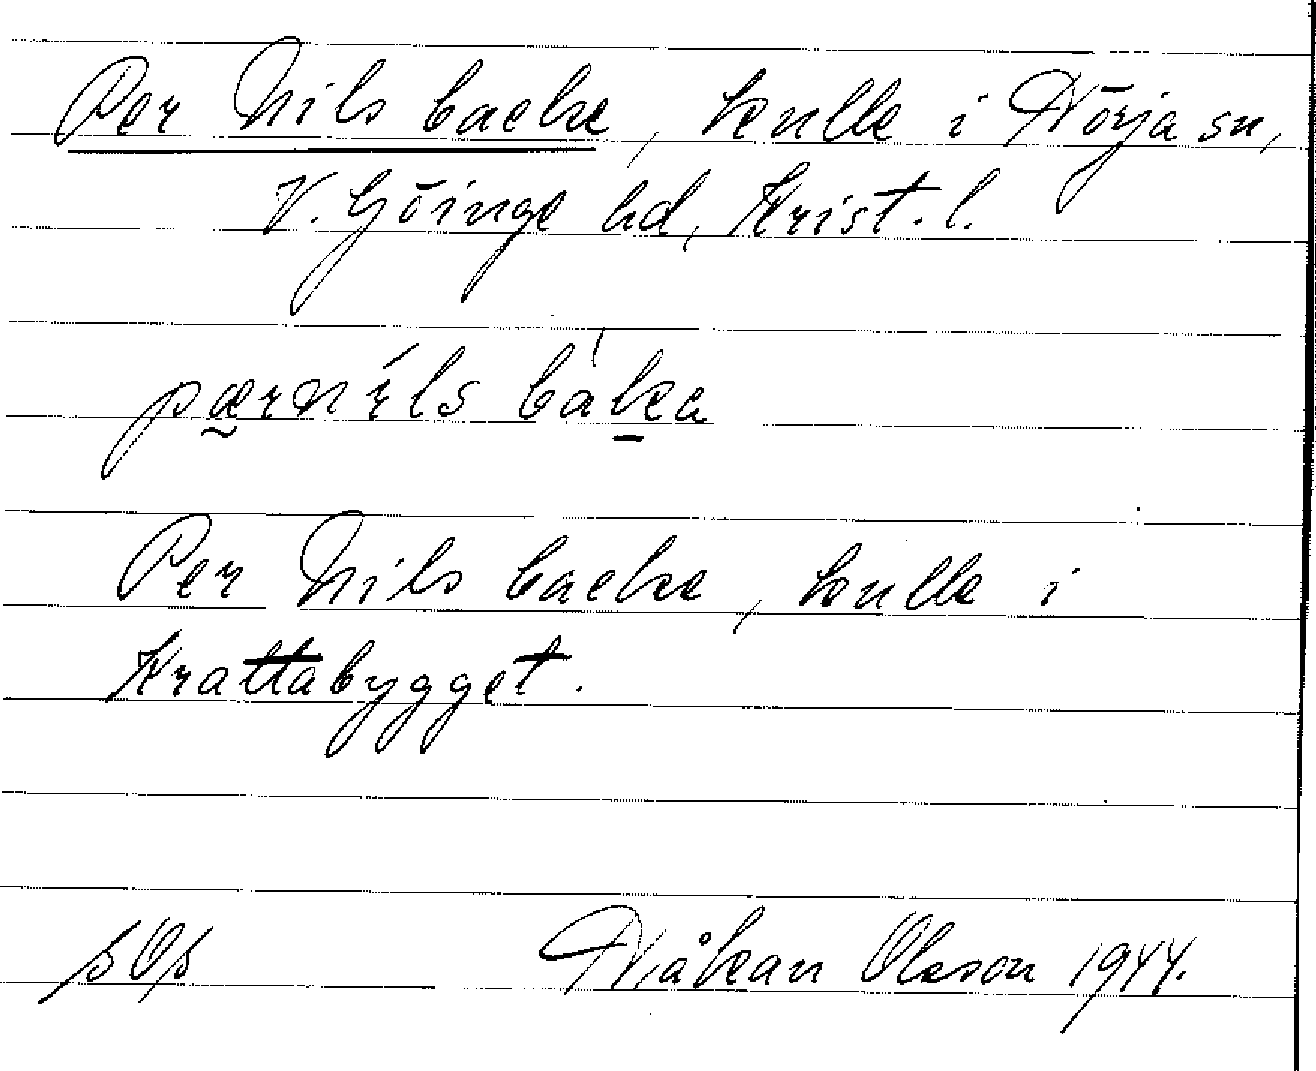 Per Nils backe, kulle i Hörja sn,
V. Göinge hd, Krist. l.
pærnils báka
Per Nils backe, kulle i
Krattabygget.
Håkan Olsson 1944.